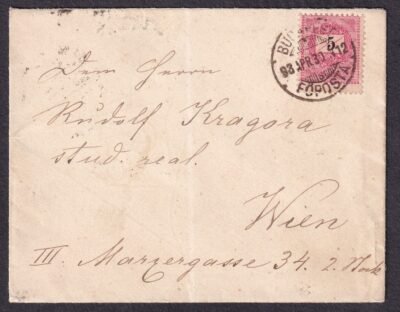 BUDAPEST
93 APR. 30
12
FŐPOSTA
5
Dem Herrn
Rudolf Kragora
stud. real.
Wien
III. Marxergasse 34. 2. Stock